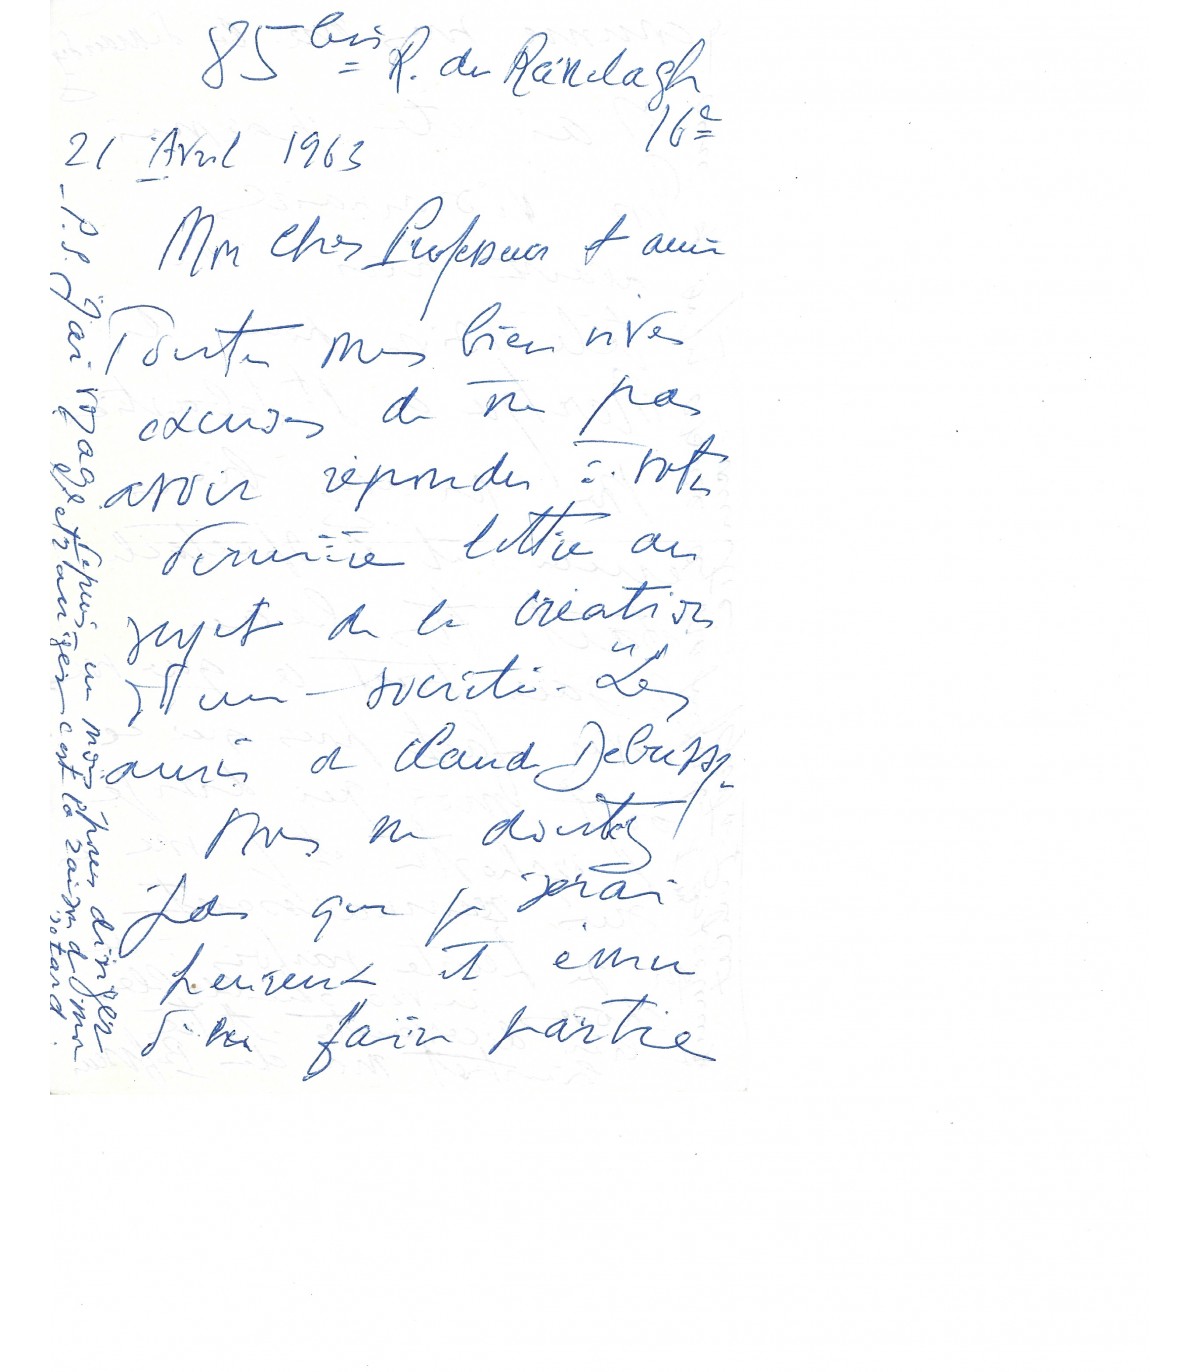 85 bis R. du Ranelagh
16e
21 Avril 1963
Mon cher Professeur et ami
Toutes mes bien vives
excuses de ne pas
avoir répondu à votre
dernière lettre au
sujet de la création
d'une société "Les
amis de Claude Debussy"
Vous ne doutez
pas que je serai
heureux et ému
d'en faire partie
- P.S. J'ai voyagé depuis un mois pour diriger
à l'étranger c'est la raison de mon
retard.